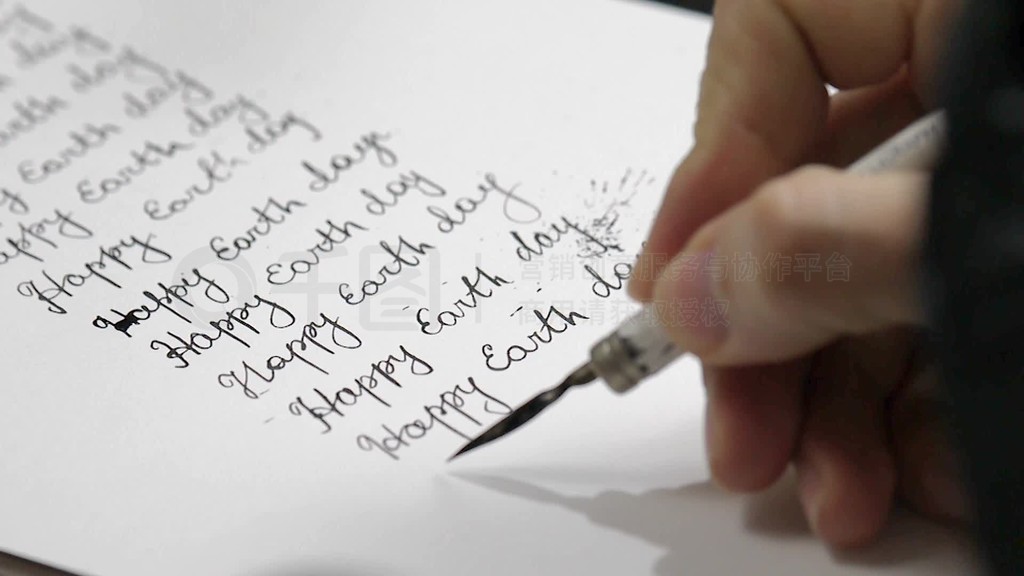 day
arth day
y Earth day
appy Earth day
Happy Earth day
Happy Earth day
Happy Earth day
Happy Earth day
Happy Earth day
Happy Earth da
千图
营销创意服务与协作平台
商用请获取授权